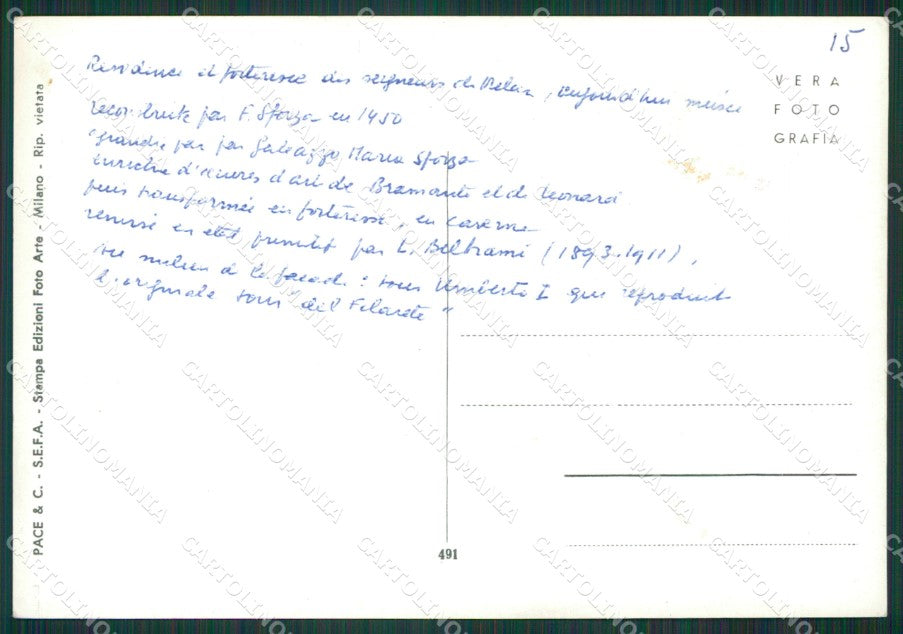 15
VERA
FOTO
GRAFIA
Residence et forteresse des seigneurs de Milan, aujourd'hui musée
reconstruite par F. Sforza en 1450
grandie par par Galeazzo Maria Sforza
enrichie d'œuvres d'art de Bramante et de Leonard
puis transformée en forteresse, en caserne
remise en état primitif par L. Beltrami (1893-1911),
au milieu de la façade: tour Umberto I qui reproduit
l'originale torri "del Filarete"
PACE & C. - S.E.F.A. - Stampa Edizioni Foto Arte - Milano - Rip. vietata
491
CARTOLINOMANIA